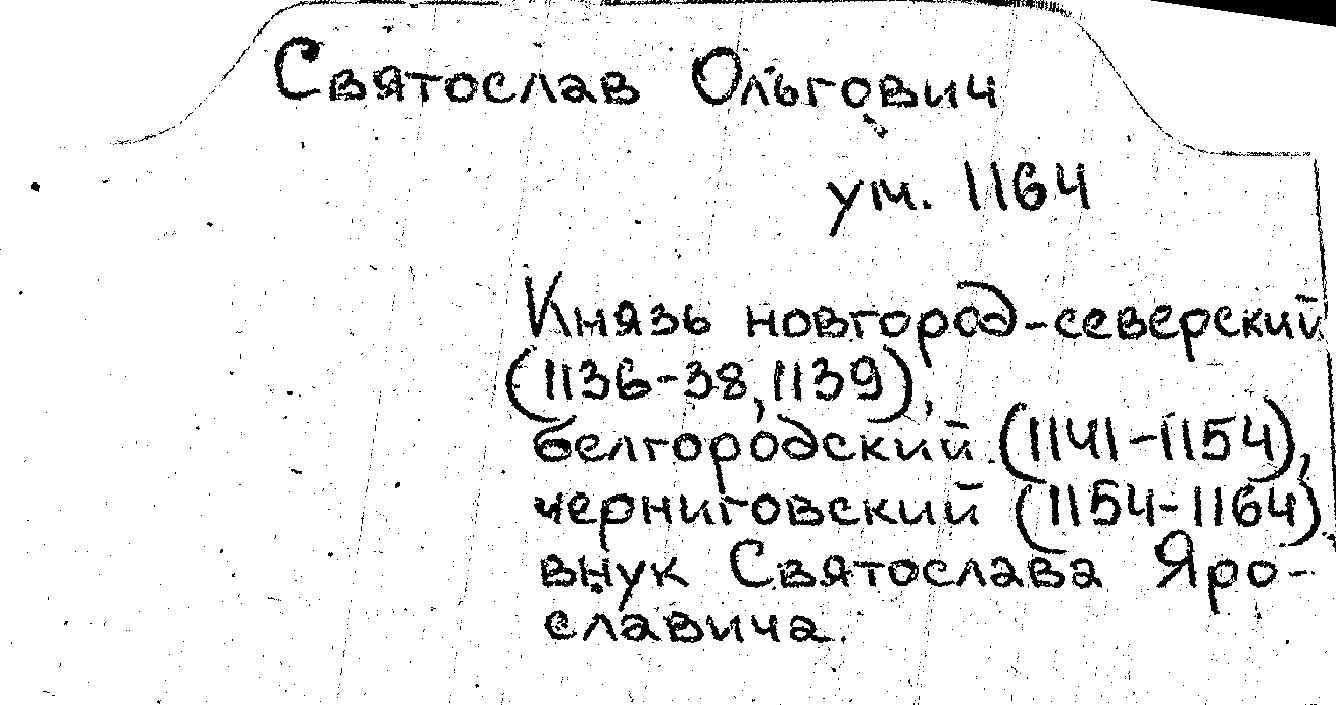 Святослав Ольгович
ум. 1164
Князь новгород-северский
(1136-38,1139),
белгородский (1141-1154),
черниговский (1154-1164)
внук Святослава Яро-
славича.